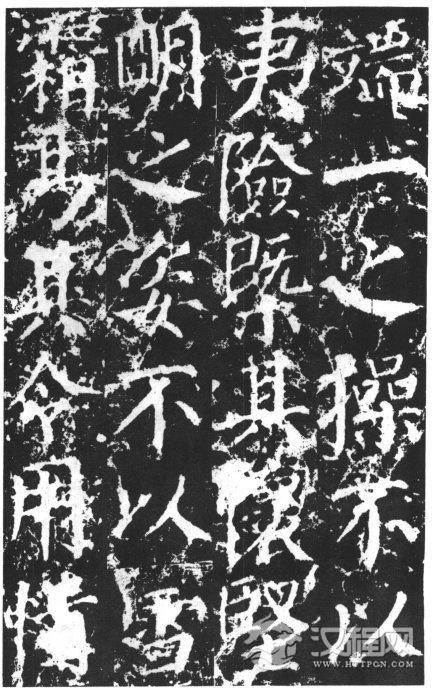 端一之操不以
夷險槩其懷堅
明之姿不以雪
霜其令用情
汉程网
WWW.HTTPCN.COM